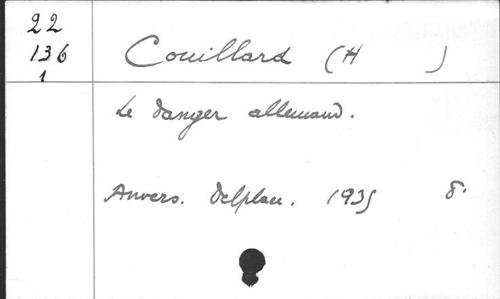 22
136
1
Couillard (H )
Le danger allemand.
Anvers. Delplace. 1935 8.